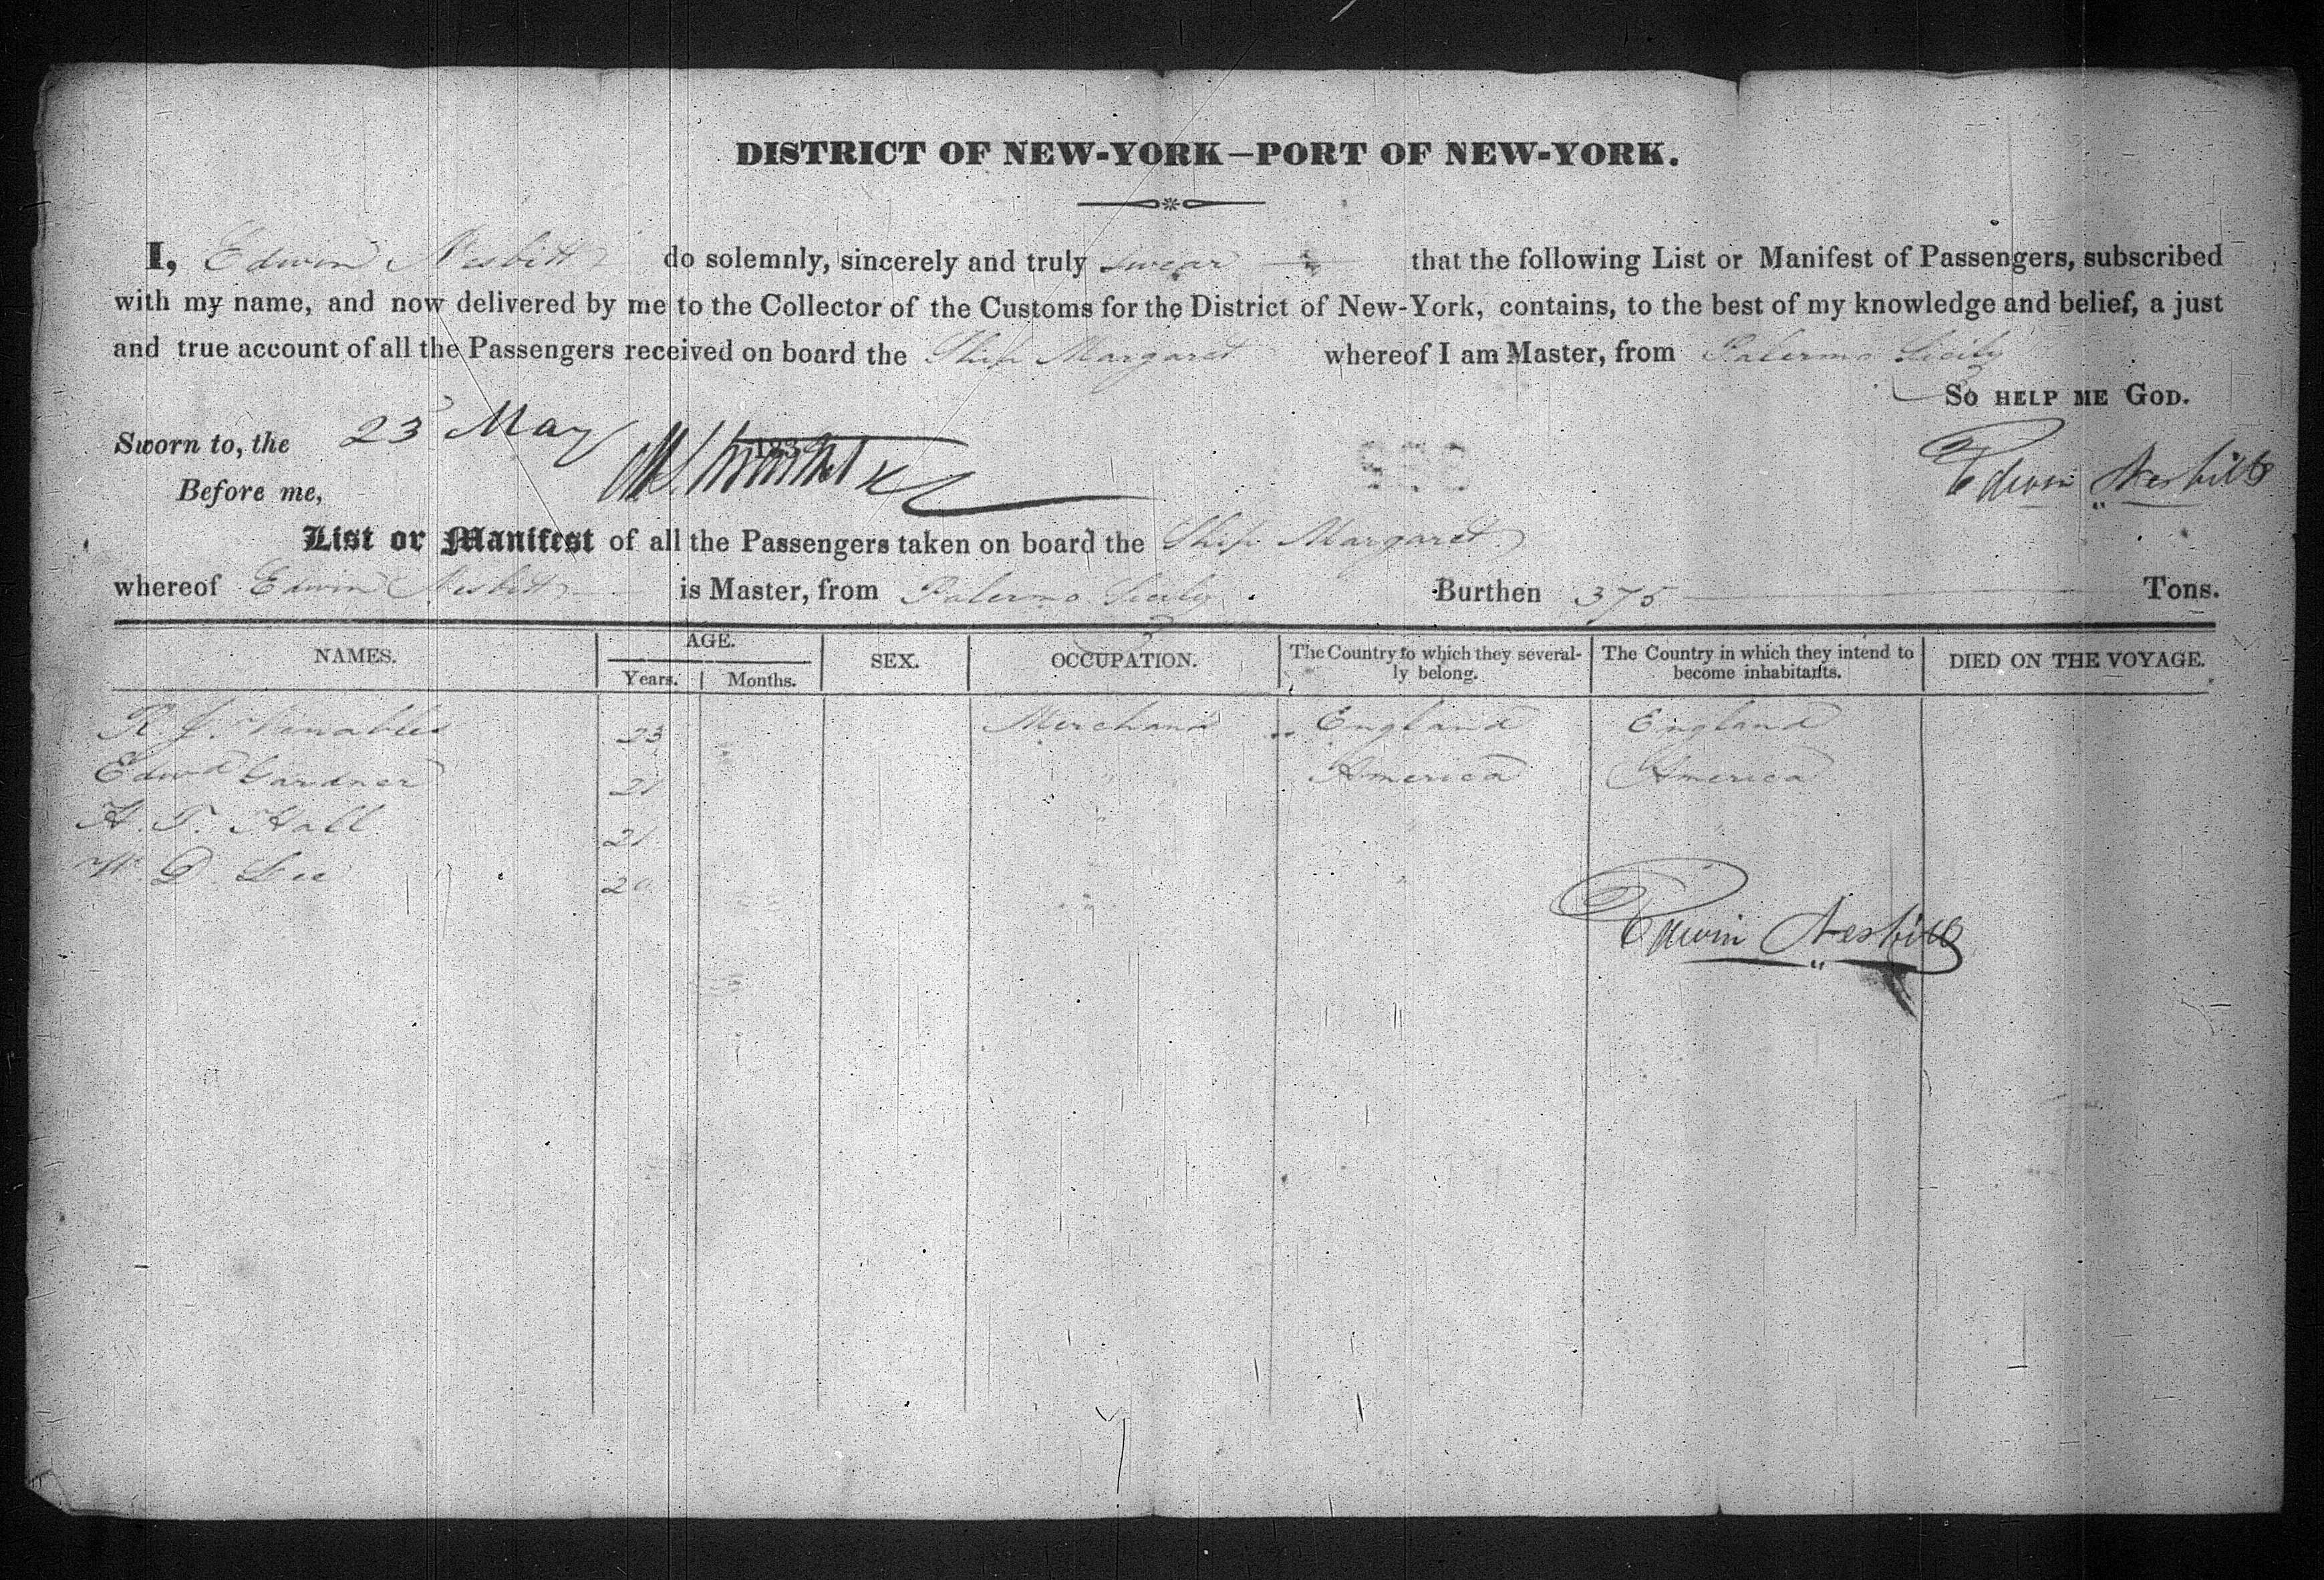 DISTRICT OF NEW-YORK—PORT OF NEW-YORK.
I, Edwin Nesbitt do solemnly, sincerely and truly swear that the following List or Manifest of Passengers, subscribed
with my name, and now delivered by me to the Collector of the Customs for the District of New-York, contains, to the best of my knowledge and belief, a just
and true account of all the Passengers received on board the Ship Margaret whereof I am Master, from Palermo Sicily
SO HELP ME GOD.
Sworn to, the 23 May 183
Before me,
Edwin Nesbitt
List or Manifest of all the Passengers taken on board the Ship Margaret
whereof Edwin Nesbitt is Master, from Palermo Sicily Burthen 375 Tons.
NAMES. AGE. SEX. OCCUPATION. The Country to which they several- The Country in which they intend to DIED ON THE VOYAGE.
Years. Months. ly belong. become inhabitants.
R. J. Venables 23 Merchant England England
Edwd Gardner 21 " America America
H. T. Hall 21 " " "
W. D. Lee 20 " "
Edwin Nesbitt